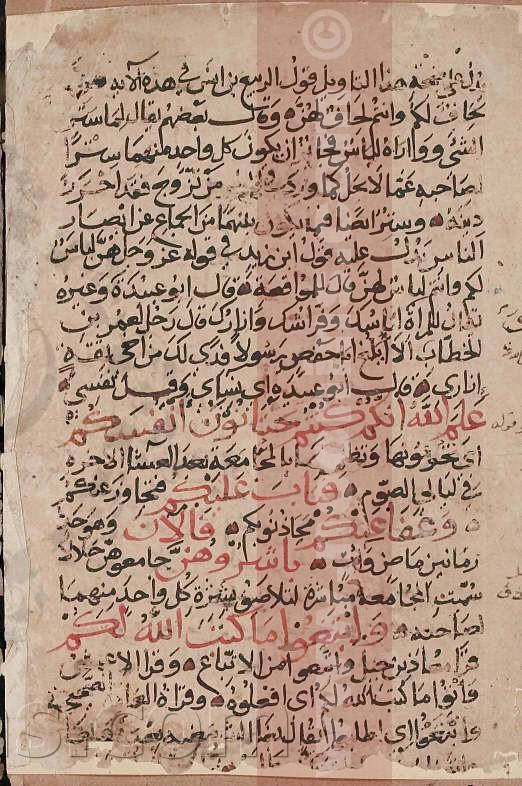 يدل على صحة هذا التاويل قول الربيع بن انس في هذه الآية هن
لحاف لكم وانتم لحاف لهن وقال بعضهم يقال لما ستر
الشئ وواراه لباس فجاز ان يكون كل واحد منهما سترا
لصاحبه عما لا يحل كما ورد في من تزوج فقد احرز
دينه وسترا ايضا فيما يكون بينهما من الجماع عن ابصار
الناس يدل عليه قول ابن زيد في قوله عز وجل هن لباس
لكم وانتم لباس لهن قال للمواقعة قال ابو عبيدة وغيره
يقال للمراة لباسك وفراشك وازارك قال رجل لعمر بن
الخطاب الا ابلغ ابا حفص رسولا فدى لك من اخي ثقة
ازاري قال ابو عبيدة اي نساي وقيل نفسي
علم الله انكم كنتم تختانون انفسكم
اي تخونونها وتظلمونها بالمجامعة بعد العشا الاخرة
في ليالي الصوم فتاب عليكم فتجاوز عنكم
وعفا عنكم محا ذنوبكم فالان وهو حد
زمانين ماض وآت باشروهن جامعوهن حلالا
سميت المجامعة مباشرة لتلاصق بشرة كل واحد منهما
لصاحبه وابتغوا ما كتب الله لكم
قرا معاذ بن جبل واتبعوا من الاتباع وقرا الاعمش
واتوا ما كتب الله لكم اي افعلوه وقراة العامة الصحيحة
وابتغوا اي اطلبوا يقال